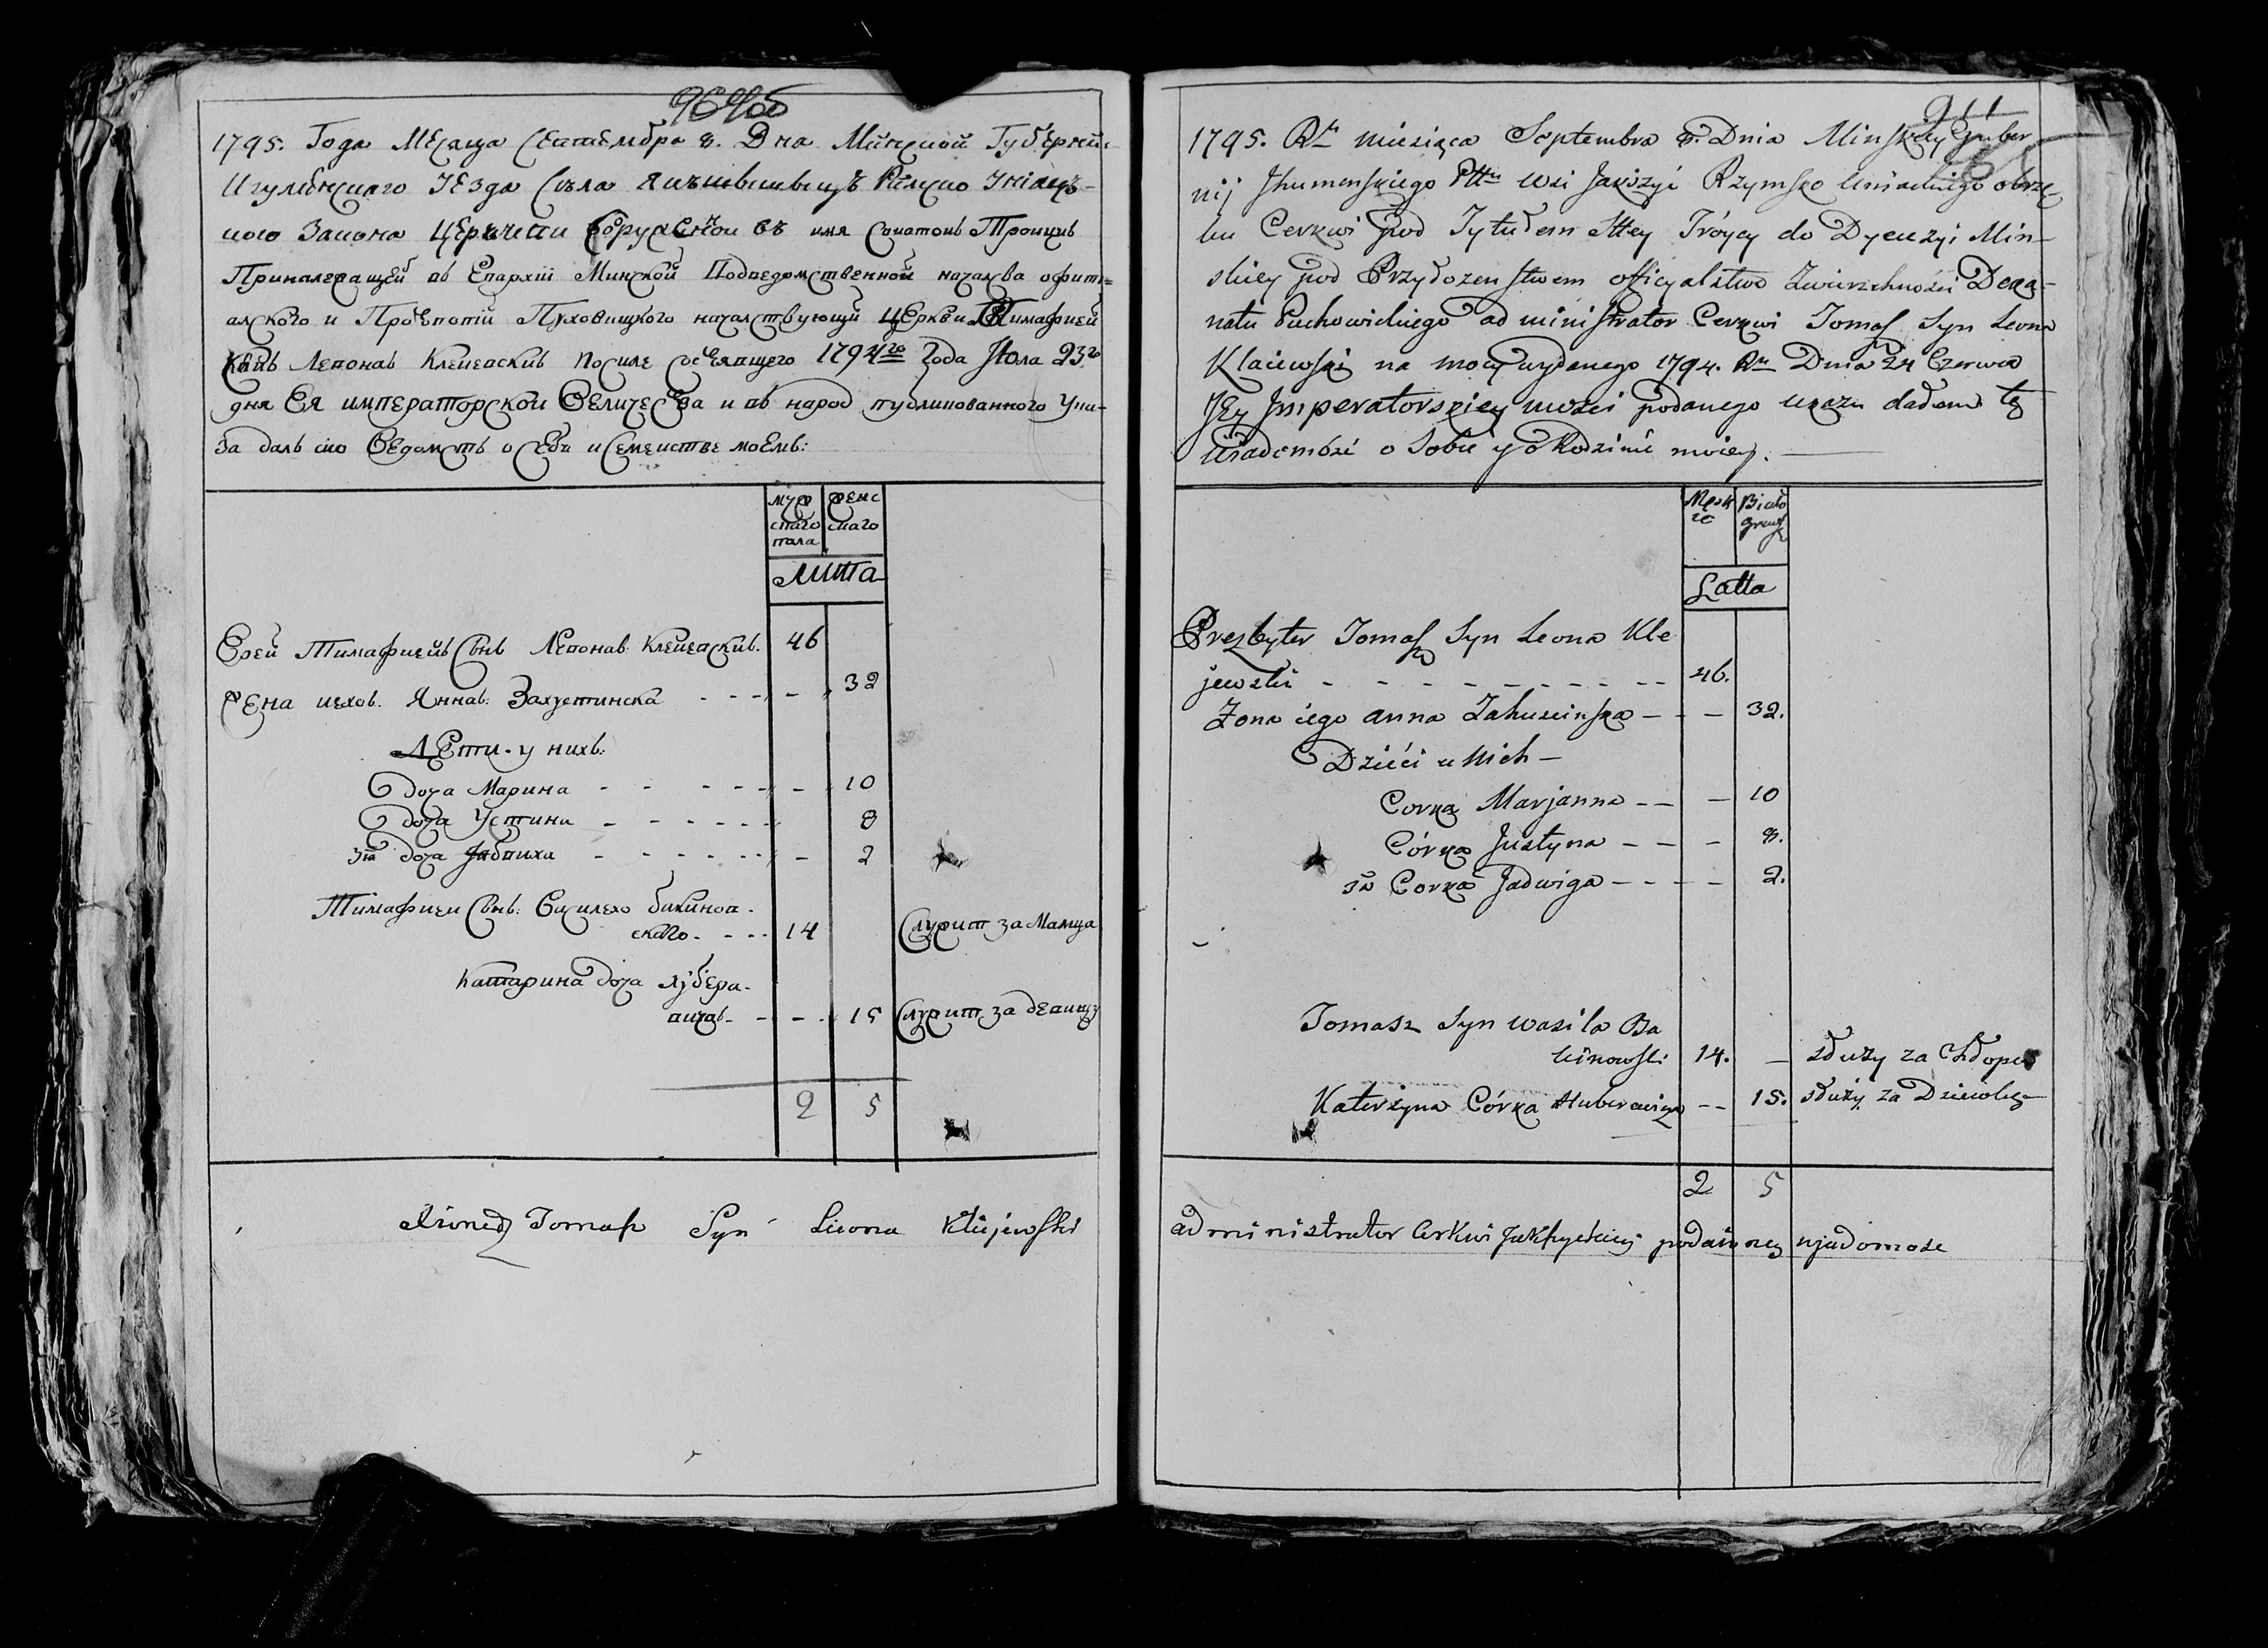 1795. Года Месяца Септембра 8. Дна Минской Губерний
Игуменскаго Уезда Села Римско Униацъ-
кого Закона въ имя Троицы
Приналежащей въ Епархiи Минской Подведомственной началства офици-
алского и Пуховицкого началствующий Церкви Тимафией
Сынъ Леонавъ Клеиевскивъ По силе состаящего 1794го Года Июла 23го
дня Ея императорской Величества и въ народ публикованного Ука-
за далъ сию Ведомсть о себи и Семеистве моемъ:
муж
скаго
пола
женс
скаго
Лита
Ерей Тимафиейъ Сынъ Леонавъ Клейевскивъ. 46
Жена иехов. Яннав: Захустинска - - - - 32
Дети у нихъ:
доча Марина - - - - - - 10
доча Устина - - - - - - 8
3та доча Ядвиха - - - - - - 2
Тимафиеи Сынъ: Василехо бакинов-
скаго - - - 14 Служит за Малца
Катарина доча хубера-
вичав - - - 15 Служит за девицу
2 5
Xiondz Tomasz Syn Leona Kliejewski
911
1795. Rku miesiąca Septembra 8. Dnia Minskiey Guber
nij Jhumenskiego Pttu Wsi Jakszyć Rzymsko Uniackiego obrzę-
ku Cerkwi pod Tytułem Stey Tróycy do Dyecezyi Min-
skiey pod Przyłożenstwem officyalstwa Zwierzchności Deka-
natu Puchowickiego administrator Cerkwi Tomasz Syn Leona
Klaiewski na mocy wydanego 1794. Rku Dnia 24 Czerwca
Jey Jmperatorskiey mości podanego ukazu dałem tę
Wiadomość o Sobie y o Rodzinie moiey.
Męsk
ie
Biało
growsk
Latta
Prezbyter Tomasz Syn Leona Kle
jewski - - - - - - - - - 46.
Żona iego anna Zahuscinska - - - 32.
Dzieci u Nich -
Corka Marjanna - - - 10
Córka Justyna - - - 8.
3a Corka Jadwiga - - - - 2.
Tomasz Syn Wasila Ba
kinowski 14. - służy za Chłopca
Katerzyna Córka Huberowicza - - 15. służy za Dziewkę
2 5
administrator Cerkwi Jakszyckiey podaie neg wjadomosc